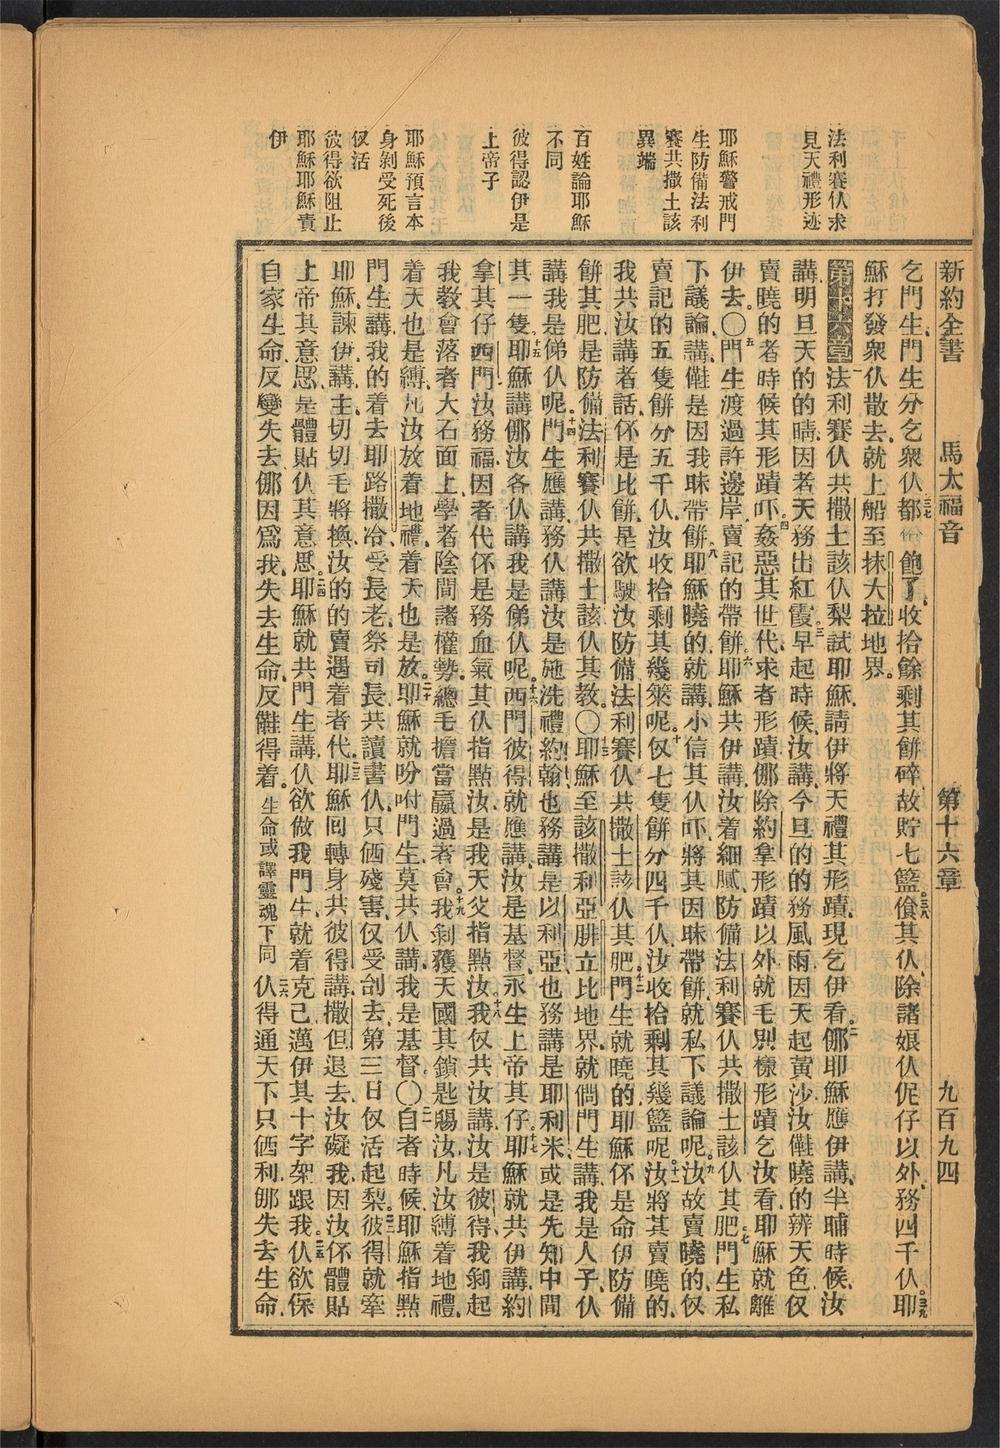 新約全書 馬太福音 第十六章 九百九四
法利賽伙求
見天禮形迹
耶穌警戒門
生防備法利
賽共撒土該
異端
百姓論耶穌
不同
彼得認伊是
上帝子
耶穌預言本
身剝受死後
仅活
彼得欲阻止
耶穌耶穌責
伊
乞門生門生分乞衆伙都飽了收拾餘剩其餅碎故貯七籃三八飧其伙除諸娘伙伲仔以外務四千伙三九耶
穌打發衆伙散去就上船至抹大拉地界
第十六章一法利賽伙共撒土該伙梨試耶穌請伊將天禮其形蹟現乞伊看二㑚耶穌應伊講半晡時候汝
講明旦天的的晴因者天務出紅霞三早起時候汝講今旦的的務風雨因天起黃沙汝㒎曉的辨天色仅
賣曉的者時候其形蹟吓四姦惡其世代求者形蹟㑚除約拿形蹟以外就毛別樣形蹟乞汝看耶穌就離
伊去〇五門生渡過許邊岸賣記的帶餅六耶穌共伊講汝着細膩防備法利賽伙共撒土該伙其肥七門生私
下議論講㒎是因我昧帶餅八耶穌曉的就講小信其伙吓將其因昧帶餅就私下議論呢九汝故賣曉的仅
賣記的五隻餅分五千伙汝收拾剩其幾筞呢十仅七隻餅分四千伙汝收拾剩其幾籃呢十一汝將其賣曉的
我共汝講者話伓是比餅是欲駛汝防備法利賽伙共撒土該伙其肥十二門生就曉的耶穌伓是命伊防備
餅其肥是防備法利賽伙共撒土該伙其教〇耶穌至該撒利亞腓立比地界就僩門生講我是人子伙
講我是俤伙呢十四門生應講務伙講汝是施洗禮約翰也務講是以利亞也務講是耶利米或是先知中間
其一隻十五耶穌講㑚汝各伙講我是俤伙呢十六西門彼得就應講汝是基督永生上帝其仔十七耶穌就共伊講約
拿其仔西門汝務福因者代伓是務血氣其伙指點汝是我天父指點汝十八我仅共汝講汝是彼得我剝起
我教會落者大石面上學者陰間諸權勢總毛擔當贏過者會十九我剝獲天國其鎖匙賜汝凡汝縛着地禮
着天也是縛凡汝放着地禮着天也是放二十耶穌就吩咐門生莫共伙講我是基督〇二一自者時候耶穌指點
門生講我的着去耶路撒冷受長老祭司長共讀書伙只価殘害仅受刣去第三日仅活起梨二二彼得就牽
耶穌諫伊講主切切毛將換汝的的賣遇着者代二三耶穌回轉身共彼得講撒但退去汝礙我因汝伓體貼
上帝其意思是體貼伙其意思二四耶穌就共門生講伙欲做我門生就着克己邁伊其十字架跟我二五伙欲保
自家生命反變失去㑚因爲我失去生命反㒎得着生命或譯靈魂下同二六伙得通天下只価利㑚失去生命